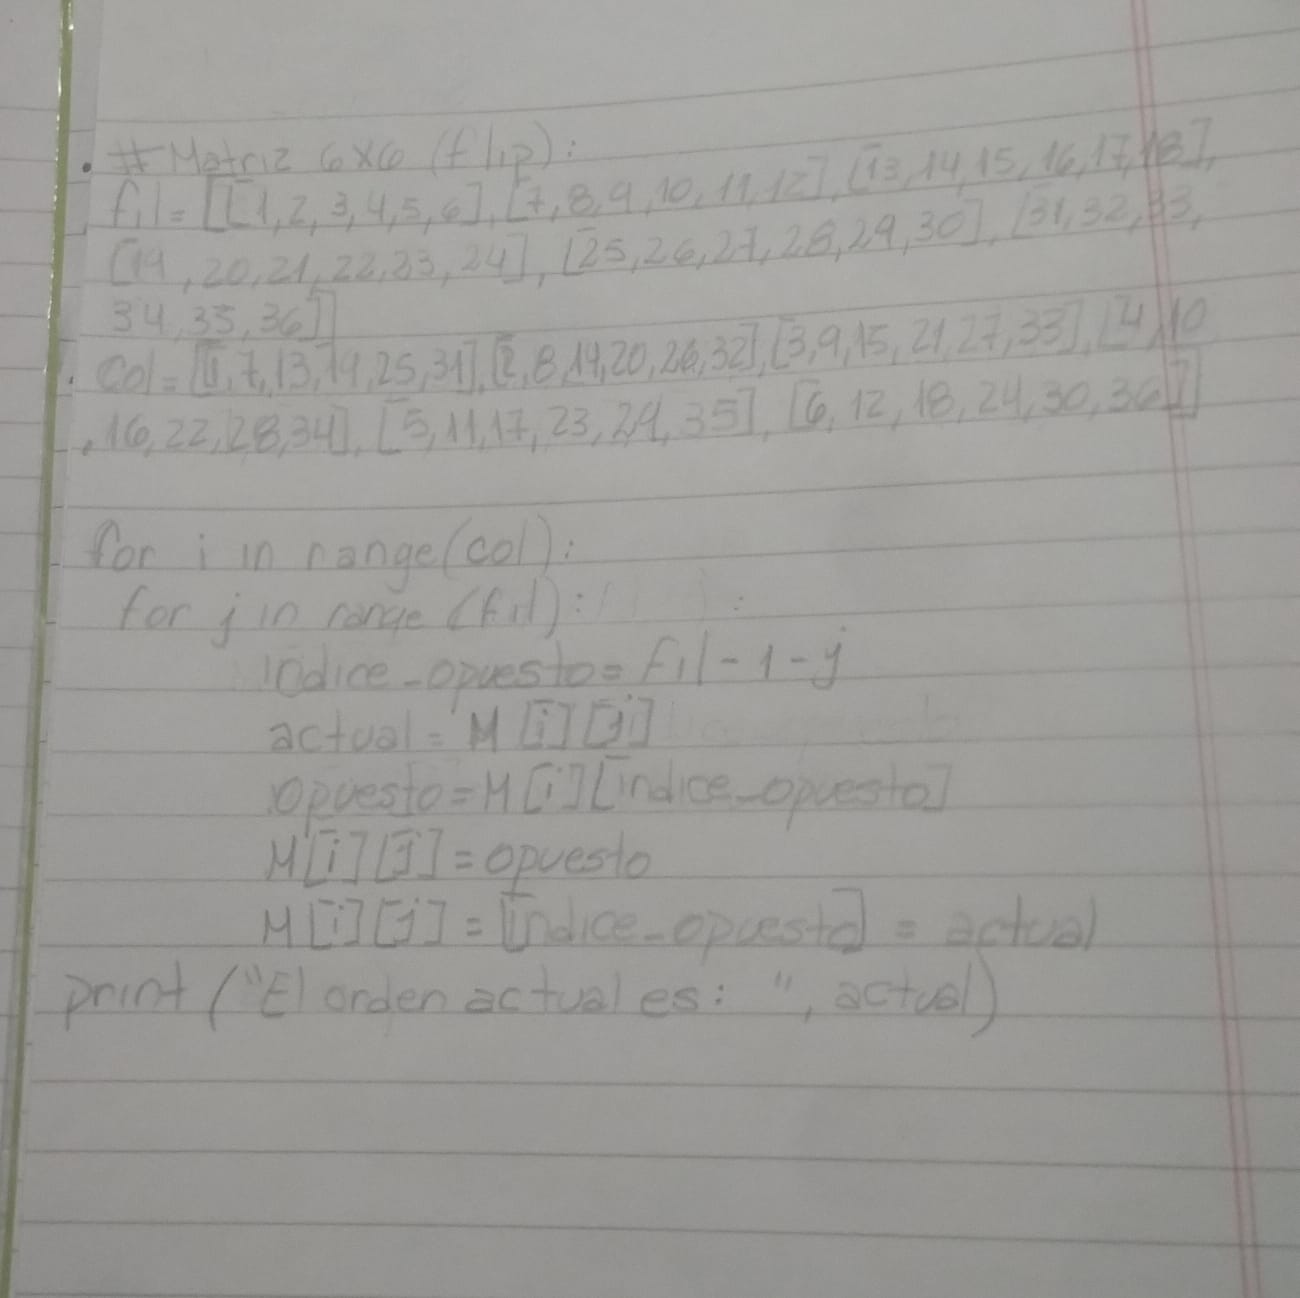 # Matriz 6x6 (flip):
fil= [[1,2,3,4,5,6],[7,8,9,10,11,12],[13,14,15,16,17,18],
[19,20,21,22,23,24],[25,26,27,28,29,30],[31,32,33,
34,35,36]]
Col=[[1,7,13,19,25,31],[2,8,14,20,26,32],[3,9,15,21,27,33],[4,10
,16,22,28,34],[5,11,17,23,29,35],[6,12,18,24,30,36]]
for i in range(col):
for j in range (fil):
indice_opuesto= fil-1-j
actual= M[i][j]
opuesto=M[i][indice_opuesto]
M[i][j]=opuesto
M[i][j]=[indice_opuesto]= actual
print ("El orden actual es: ", actual)